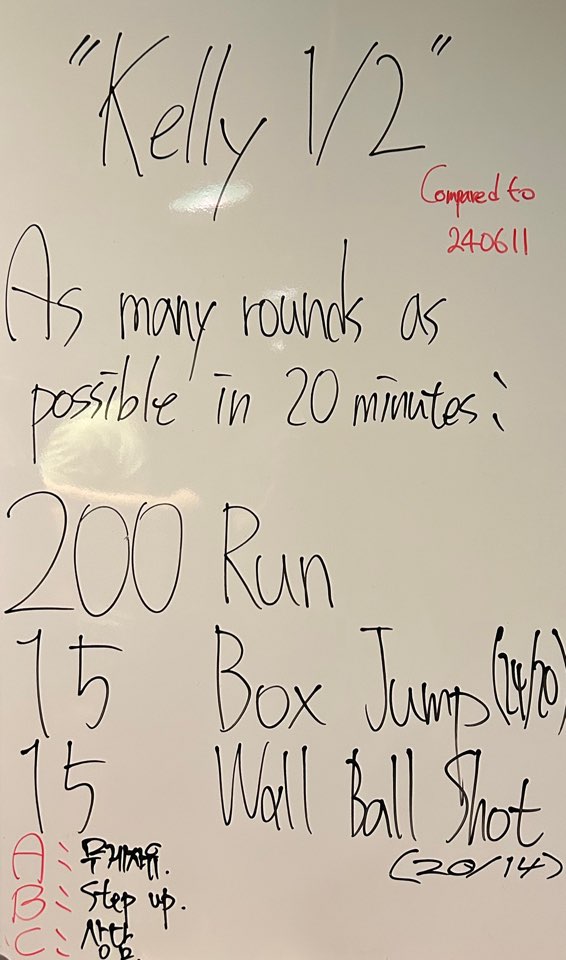 "Kelly 1/2"
Compared to
240611
As many rounds as
possible in 20 minutes:
200 Run
15 Box Jump (24/20)
15 Wall Ball Shot
(20/14)
A: 무게자유.
B: Step up.
C: 상담.